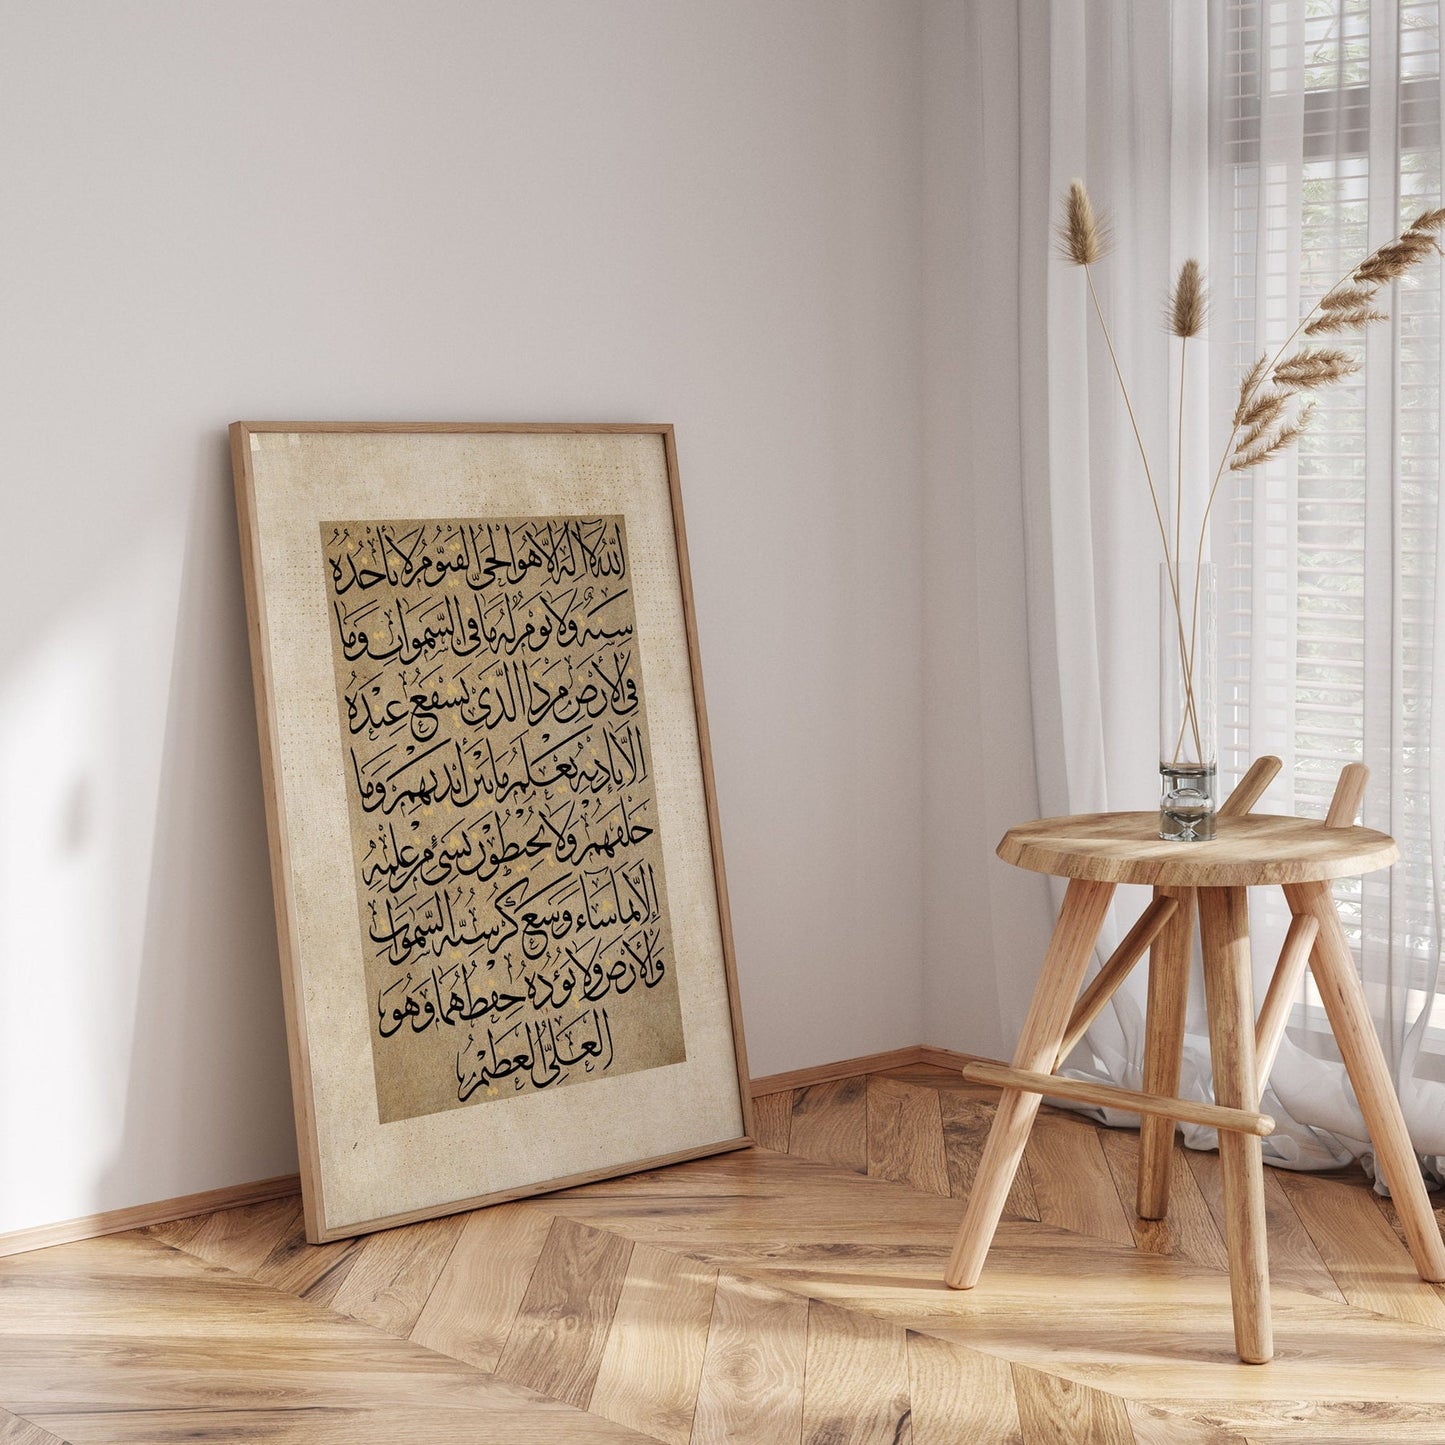 اللّٰهُ لَا اِلٰهَ اِلَّا هُوَ الْحَيُّ الْقَيُّومُ لَا تَأْخُذُهُ
سِنَةٌ وَلَا نَوْمٌ لَهُ مَا فِي السَّمَوَاتِ وَمَا
فِي الْأَرْضِ مَنْ ذَا الَّذِي يَشْفَعُ عِنْدَهُ
اِلَّا بِاِذْنِهِ يَعْلَمُ مَا بَيْنَ أَيْدِيهِمْ وَمَا
خَلْفَهُمْ وَلَا يُحِيطُونَ بِشَيْءٍ مِنْ عِلْمِهِ
اِلَّا بِمَا شَاءَ وَسِعَ كُرْسِيُّهُ السَّمَوَاتِ
وَالْأَرْضَ وَلَا يَؤُدُهُ حِفْظُهُمَا وَهُوَ
الْعَلِيُّ الْعَظِيمُ